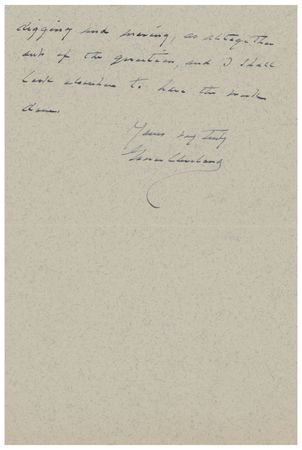 digging and moving, as altogether
out of the question, and I shall
look elsewhere to have the work
done.
Yours very truly
Grover Cleveland